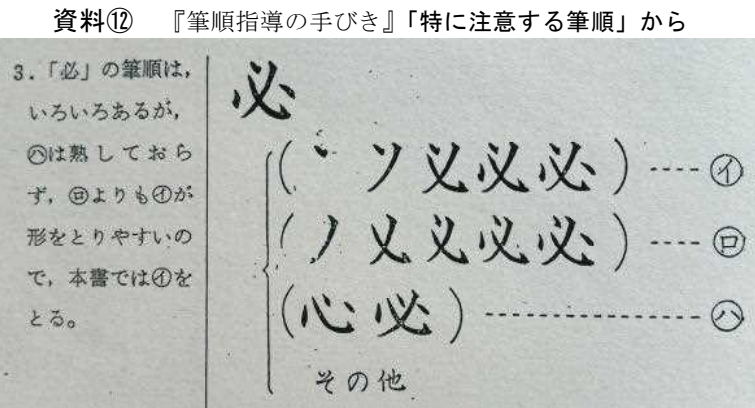 資料⑫　『筆順指導の手びき』「特に注意する筆順」から
3．「必」の筆順は，
いろいろあるが，
㋩は熟しておら
ず，㋺よりも㋑が
形をとりやすいの
で，本書では㋑を
とる。
必
(丶 ソ 必 必) ---- ㋑
(ノ 乂 必 必) ---- ㋺
(心 必) ---------------- ㋩
その他